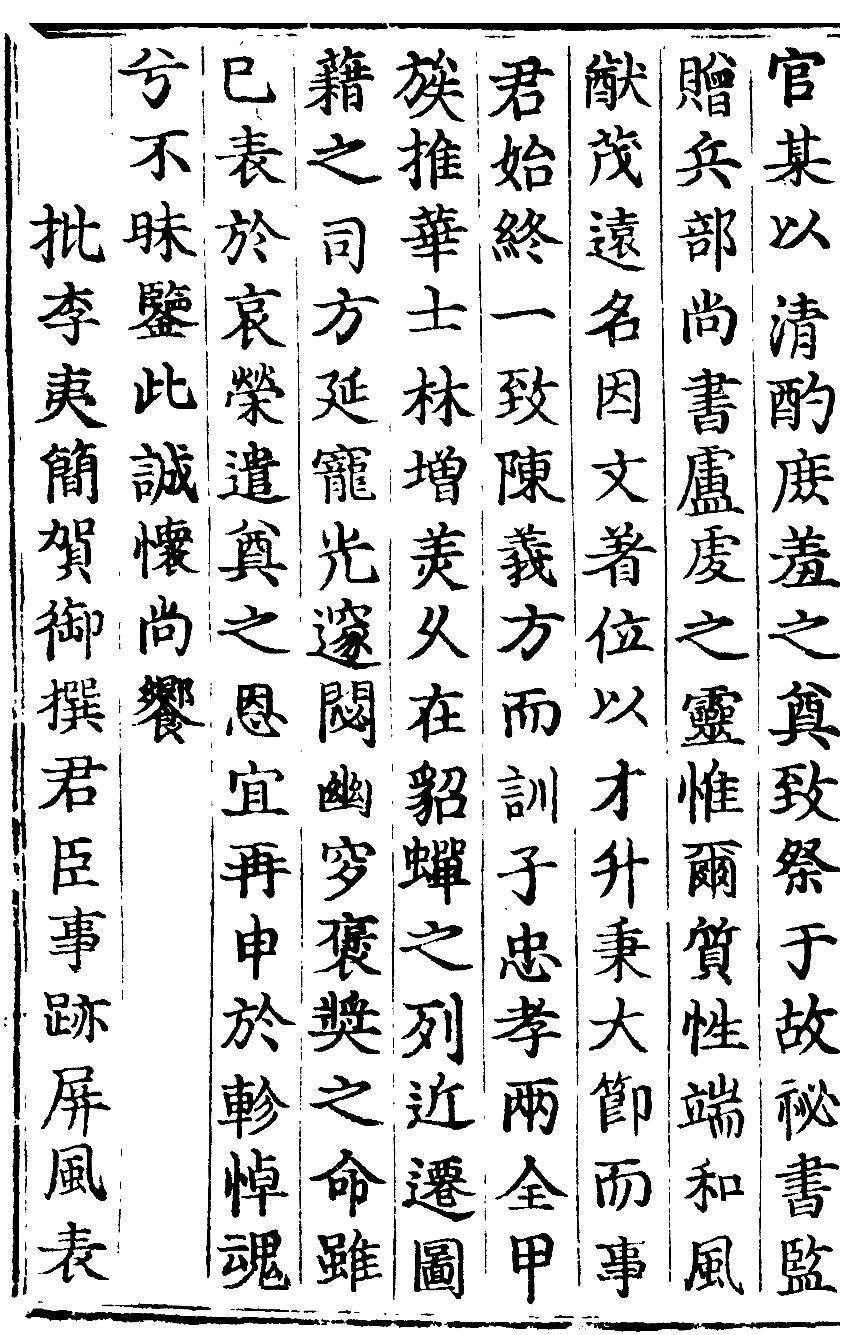 官某以清酌庶羞之奠致祭于故祕書監
贈兵部尚書盧虔之靈惟爾質性端和風
猷茂遠名因文著位以才升秉大節而事
君始終一致陳義方而訓子忠孝兩全甲
族推華士林增羨久在貂蟬之列近遷圖
藉之司方延寵光邃閟幽穸褒奬之命雖
已表於哀榮遣奠之恩宜再申於軫悼魂
兮不昧鑒此誠懷尚饗
批李夷簡賀御撰君臣事跡屏風表